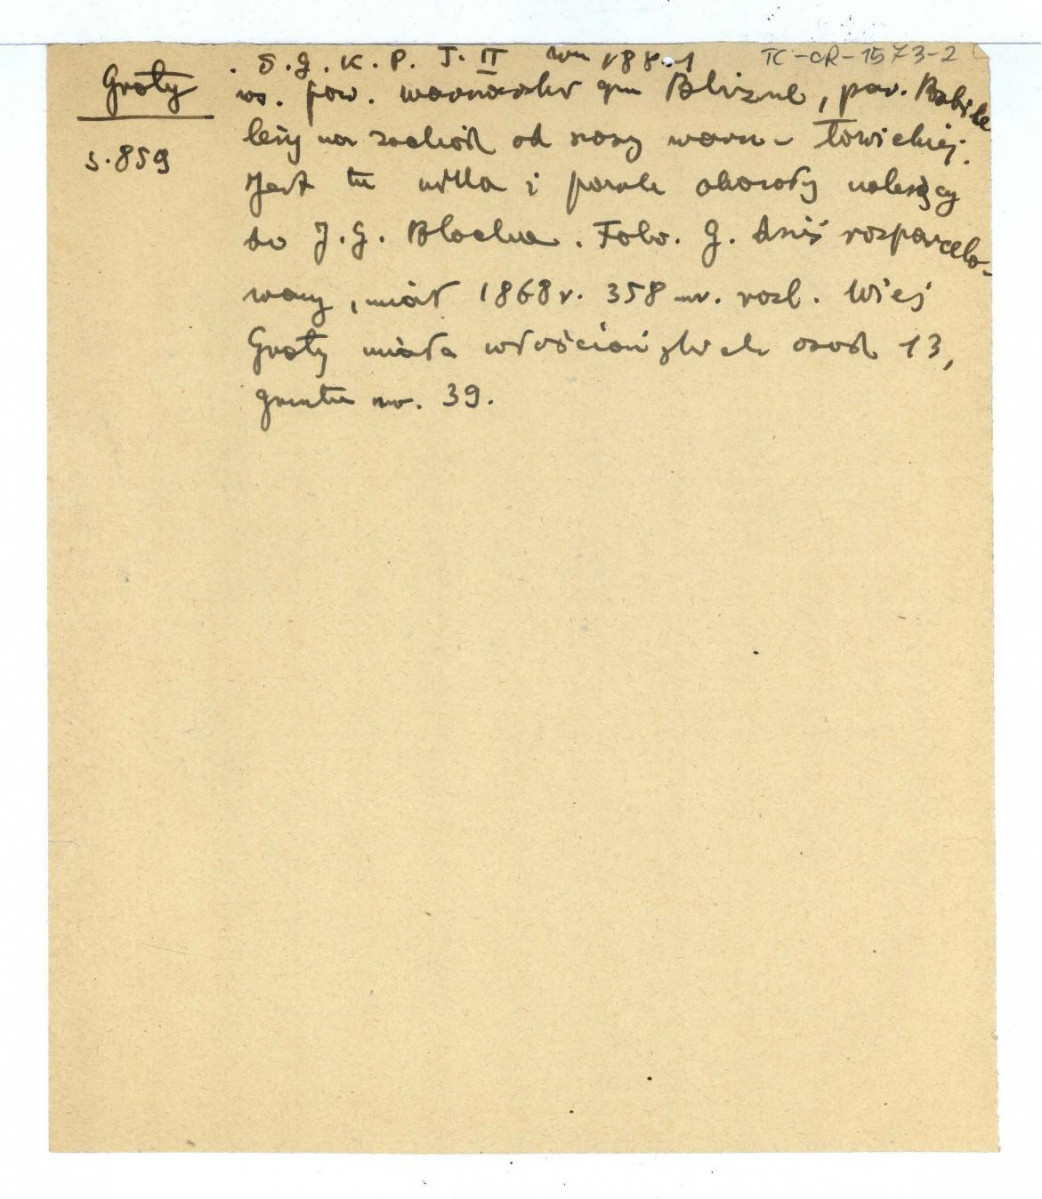 S.G.K.P. T. II 1881 TC-OR-1573-2
Groty
ws. pow. warszawski gm Blizne, par. Babice
s. 859
leży na zachód od szosy warsz - łowickiej.
Jest tu willa i park okazały należący
do J.G. Blocha. Folw. G. dziś rozparcelo-
wany, miał 1868 r. 358 mr. rozl. Wieś
Groty miała włościańskich osad 13,
gruntu mr. 39.